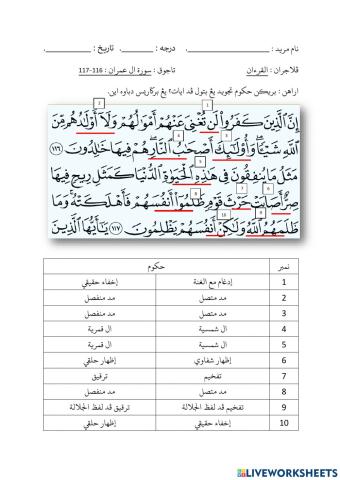 نام مريد : ____________ درجه : ________ تاريخ : __________
ڤلاجران : القرءان تاجوق : سورة ال عمران : 116-117
اراهن : بريكن حكوم تجويد يڠ بتول ڤد ايات٢ يڠ برݢاريس دباوه اين.
2 1
إِنَّ ٱلَّذِينَ كَفَرُوا۟ لَن تُغْنِىَ عَنْهُمْ أَمْوَٰلُهُمْ وَلَآ أَوْلَـٰدُهُم مِّنَ
4 3
ٱللَّهِ شَيْـًٔا ۖ وَأُو۟لَـٰٓئِكَ أَصْحَـٰبُ ٱلنَّارِ ۚ هُمْ فِيهَا خَـٰلِدُونَ ١١٦
5
مَثَلُ مَا يُنفِقُونَ فِى هَـٰذِهِ ٱلْحَيَوٰةِ ٱلدُّنْيَا كَمَثَلِ رِيحٍ فِيهَا
8 6 7
صِرٌّ أَصَابَتْ حَرْثَ قَوْمٍ ظَلَمُوٓا۟ أَنفُسَهُمْ فَأَهْلَكَتْهُ ۚ وَمَا
10 9
ظَلَمَهُمُ ٱللَّهُ وَلَـٰكِنْ أَنفُسَهُمْ يَظْلِمُونَ ١١٧ يَـٰٓأَيُّهَا ٱلَّذِينَ
نمبر حكوم
1 إدغام مع الغنة إخفاء حقيقي
2 مد متصل مد منفصل
3 مد متصل مد منفصل
4 ال شمسية ال قمرية
5 ال شمسية ال قمرية
6 إظهار شفاوي إظهار حلقي
7 تفخيم ترقيق
8 مد متصل مد منفصل
9 تفخيم ڤد لفظ الجلالة ترقيق ڤد لفظ الجلالة
10 إخفاء حقيقي إظهار حلقي
LIVEWORKSHEETS